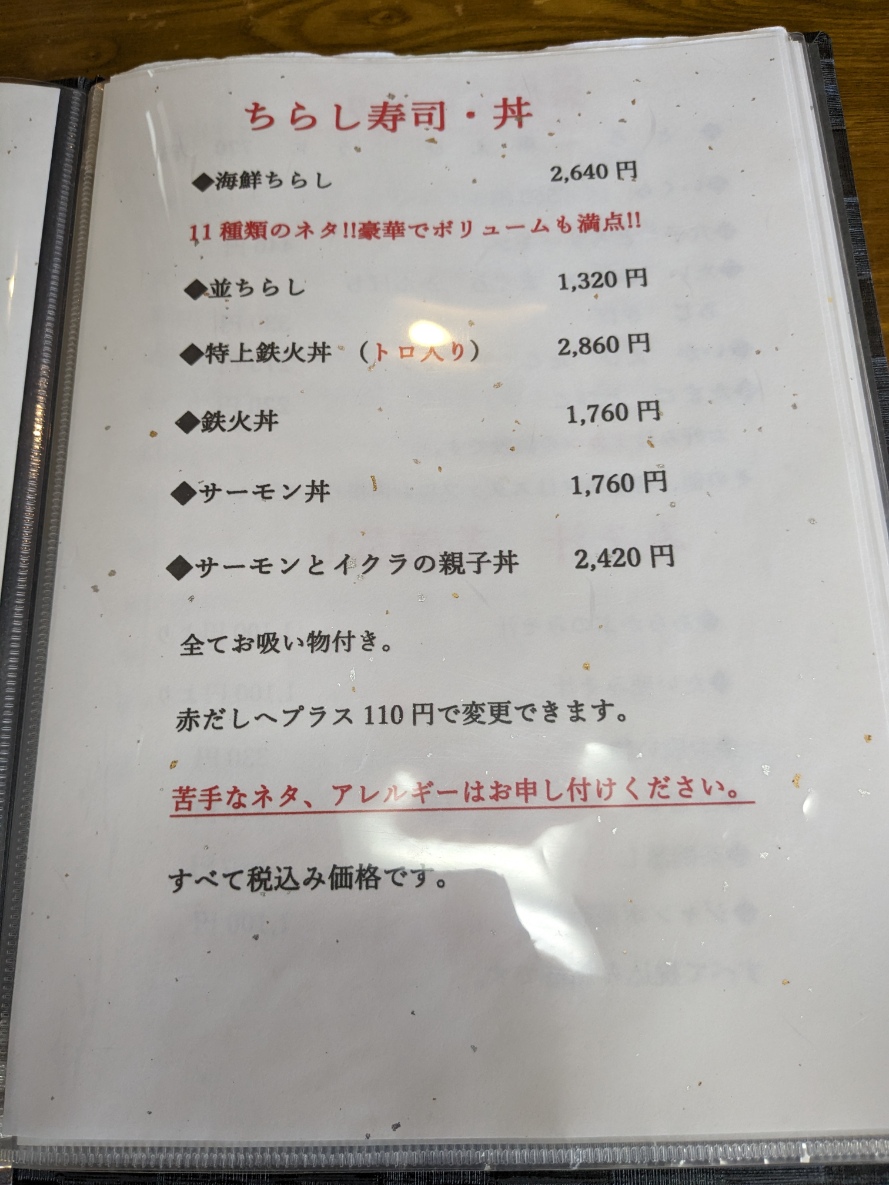 ちらし寿司・丼
◆海鮮ちらし 2,640 円
11 種類のネタ!!豪華でボリュームも満点!!
◆並ちらし 1,320 円
◆特上鉄火丼 （トロ入り） 2,860 円
◆鉄火丼 1,760 円
◆サーモン丼 1,760 円
◆サーモンとイクラの親子丼 2,420 円
全てお吸い物付き。
赤だしへプラス 110 円で変更できます。
苦手なネタ、アレルギーはお申し付けください。
すべて税込み価格です。